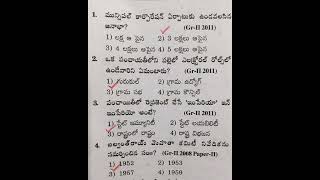 1. మున్సిపల్ కార్పొరేషన్ ఏర్పాటుకు ఉండవలసిన
జనాభా? (Gr-II 2011)
1) లక్ష ఆ పైన 2) 3 లక్షలు ఆపైన
3) 4 లక్షలు ఆపైన 4) 5 లక్షలు ఆపైన
2. ఒక పంచాయతీలోని పల్లెలో ఎలక్టోరల్ రోల్స్‌లో
ఉండేవారిని ఏమంటారు? (Gr-II 2011)
1) గురుకుల్ 2) గ్రామ ఉద్యోగ్
3) గ్రామ సభ 4) గ్రామ కౌన్సిల్
3. పంచాయితీలో రిప్రజెంట్ చేసే 'ఇంపీరియా' ఇన్
ఇంపీరియో అంటే? (Gr-II 2011)
1) స్టేట్ ఇమ్యూనిటీ 2) స్టేట్ లయబిలిటీ
3) రాష్ట్రంలో రాష్ట్రం 4) రాష్ట్ర విభజన
4. బల్వంత్‌రాయ్ మెహతా కమిటీ నివేదికను
సమర్పించిన సం? (Gr-II 2008 Paper-II)
1) 1952 2) 1953
3) 1957 4) 1959